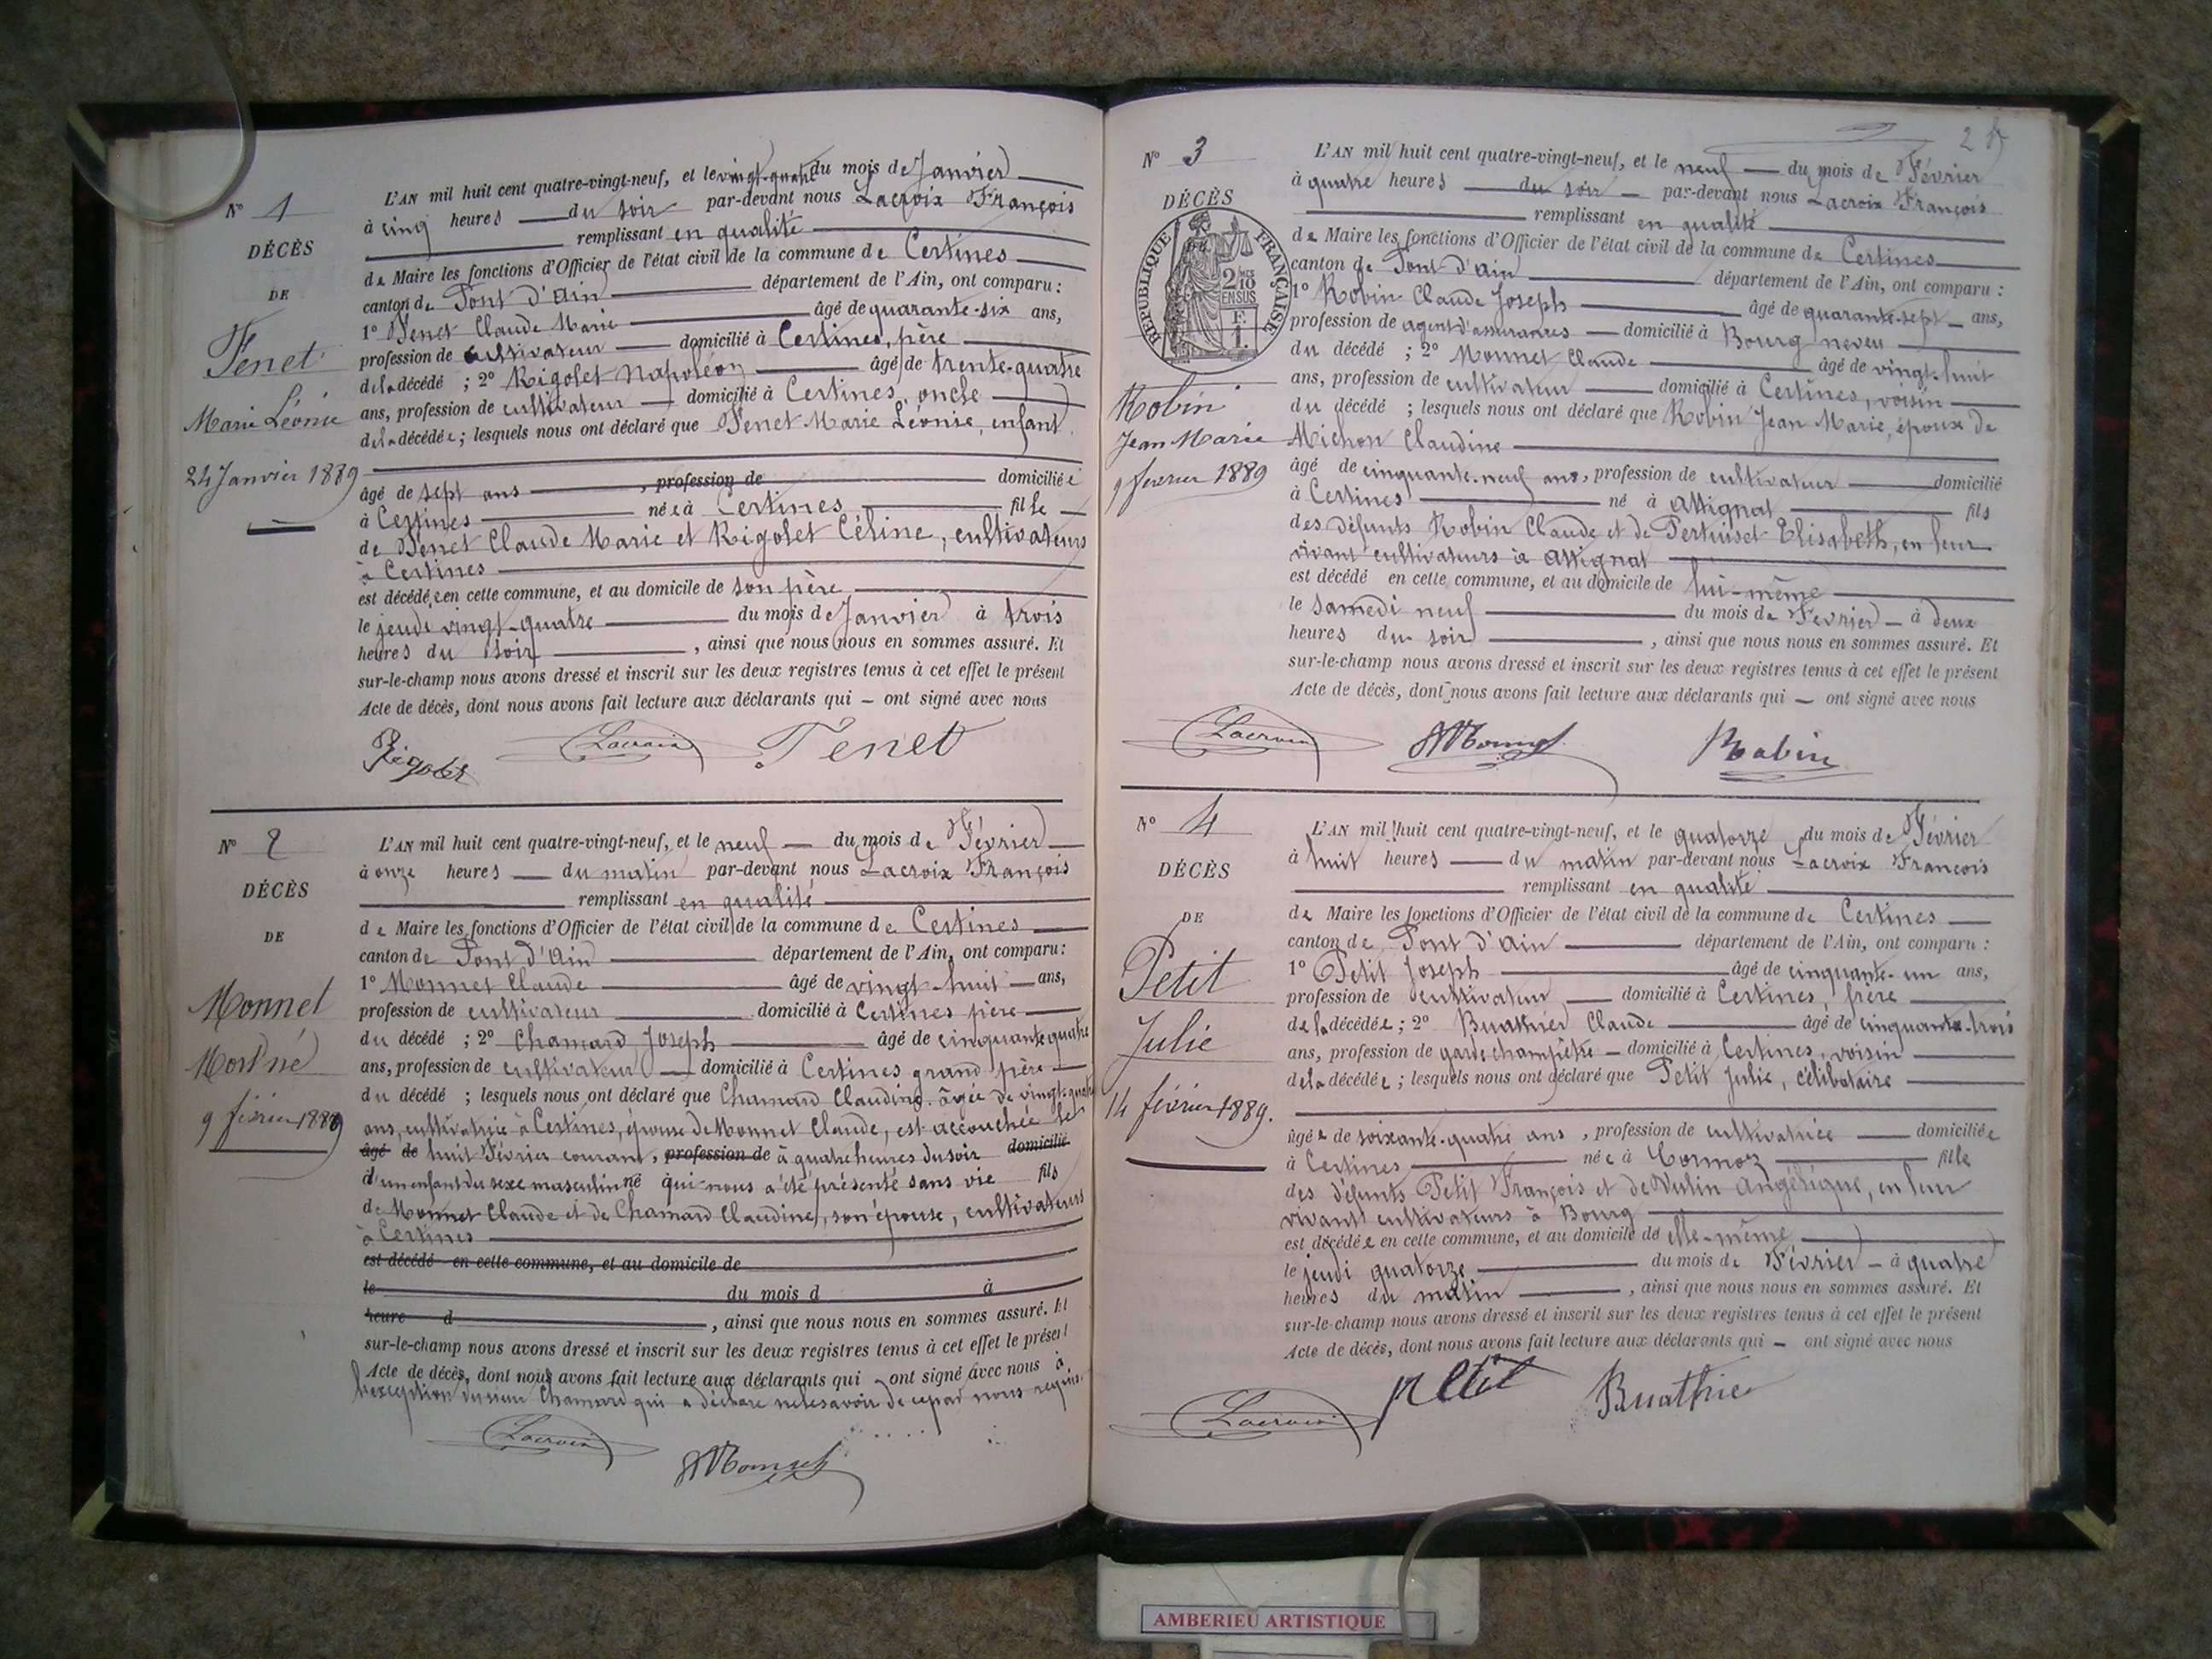 N° 1
DÉCÈS
DE
Tenet
Marie Léonie
24 Janvier 1889
L'AN mil huit cent quatre-vingt-neuf, et le vingt-quatre du mois de Janvier
à cinq heures du soir par-devant nous Lacroix François
remplissant en qualité
de Maire les fonctions d'Officier de l'état civil de la commune de Certines
canton de Pont d'Ain département de l'Ain, ont comparu :
1° Tenet Claude Marie âgé de quarante-six ans,
profession de cultivateur domicilié à Certines, père
de la décédé ; 2° Rigolet Napoléon âgé de trente-quatre
ans, profession de cultivateur domicilié à Certines, oncle
de la décédée ; lesquels nous ont déclaré que Tenet Marie Léonie, enfant
âgé de sept ans , profession de domiciliée
à Certines née à Certines fille
de Tenet Claude Marie et Rigolet Céline, cultivateurs
à Certines
est décédée en cette commune, et au domicile de son père
le jeudi vingt-quatre du mois de Janvier à trois
heures du soir , ainsi que nous nous en sommes assuré. Et
sur-le-champ nous avons dressé et inscrit sur les deux registres tenus à cet effet le présent
Acte de décès, dont nous avons fait lecture aux déclarants qui – ont signé avec nous
Rigolet Lacroix Tenet
N° 2
DÉCÈS
DE
Monnet
Mort né
9 février 1889
L'AN mil huit cent quatre-vingt-neuf, et le neuf du mois de Février
à onze heures du matin par-devant nous Lacroix François
remplissant en qualité
de Maire les fonctions d'Officier de l'état civil de la commune de Certines
canton de Pont d'Ain département de l'Ain, ont comparu :
1° Monnet Claude âgé de vingt-huit ans,
profession de cultivateur domicilié à Certines père
du décédé ; 2° Chamard Joseph âgé de cinquante quatre
ans, profession de cultivateur domicilié à Certines grand père
du décédé ; lesquels nous ont déclaré que Chamard Claudine âgée de vingt-quatre
ans, cultivatrice à Certines, épouse de Monnet Claude, est accouchée le
âgé de huit Février courant, profession de à quatre heures du soir domicilié
d'un enfant du sexe masculin né qui nous a été présenté sans vie fils
de Monnet Claude et de Chamard Claudine, son épouse, cultivateurs
à Certines
est décédé en cette commune, et au domicile de
le du mois d à
heure d , ainsi que nous nous en sommes assuré. Et
sur-le-champ nous avons dressé et inscrit sur les deux registres tenus à cet effet le présent
Acte de décès, dont nous avons fait lecture aux déclarants qui ont signé avec nous à
l'exception du sieur Chamard qui a déclaré ne le savoir de ce par nous requis.
Lacroix Monnet
2
N° 3
DÉCÈS
RÉPUBLIQUE FRANÇAISE
2/10 EN SUS
F. 1.
Robin
Jean Marie
9 février 1889
L'AN mil huit cent quatre-vingt-neuf, et le neuf du mois de Février
à quatre heures du soir par-devant nous Lacroix François
remplissant en qualité
de Maire les fonctions d'Officier de l'état civil de la commune de Certines
canton de Pont d'Ain département de l'Ain, ont comparu :
1° Robin Claude Joseph âgé de quarante-sept ans,
profession de agent d'assurances domicilié à Bourg neveu
du décédé ; 2° Monnet Claude âgé de vingt-huit
ans, profession de cultivateur domicilié à Certines, voisin
du décédé ; lesquels nous ont déclaré que Robin Jean Marie, époux de
Michon Claudine
âgé de cinquante-neuf ans, profession de cultivateur domicilié
à Certines né à Attignat fils
des défunts Robin Claude et de Pertuiset Elisabeth, en leur
vivant cultivateurs à Attignat
est décédé en cette commune, et au domicile de lui-même
le samedi neuf du mois de Février à deux
heures du soir , ainsi que nous nous en sommes assuré. Et
sur-le-champ nous avons dressé et inscrit sur les deux registres tenus à cet effet le présent
Acte de décès, dont nous avons fait lecture aux déclarants qui – ont signé avec nous
Lacroix Monnet Robin
N° 4
DÉCÈS
DE
Petit
Julie
14 février 1889.
L'AN mil huit cent quatre-vingt-neuf, et le quatorze du mois de Février
à huit heures du matin par-devant nous Lacroix François
remplissant en qualité
de Maire les fonctions d'Officier de l'état civil de la commune de Certines
canton de Pont d'Ain département de l'Ain, ont comparu :
1° Petit Joseph âgé de cinquante-un ans,
profession de cultivateur domicilié à Certines, frère
de la décédée ; 2° Buathier Claude âgé de cinquante-trois
ans, profession de garde champêtre domicilié à Certines, voisin
de la décédée ; lesquels nous ont déclaré que Petit Julie, célibataire
âgée de soixante-quatre ans , profession de cultivatrice domiciliée
à Certines née à Cormoz fille
des défunts Petit François et de Vulin Angélique, en leur
vivant cultivateurs à Bourg
est décédée en cette commune, et au domicile de elle-même
le jeudi quatorze du mois de Février à quatre
heures du matin , ainsi que nous nous en sommes assuré. Et
sur-le-champ nous avons dressé et inscrit sur les deux registres tenus à cet effet le présent
Acte de décès, dont nous avons fait lecture aux déclarants qui – ont signé avec nous
Lacroix Petit Buathier
AMBERIEU ARTISTIQUE